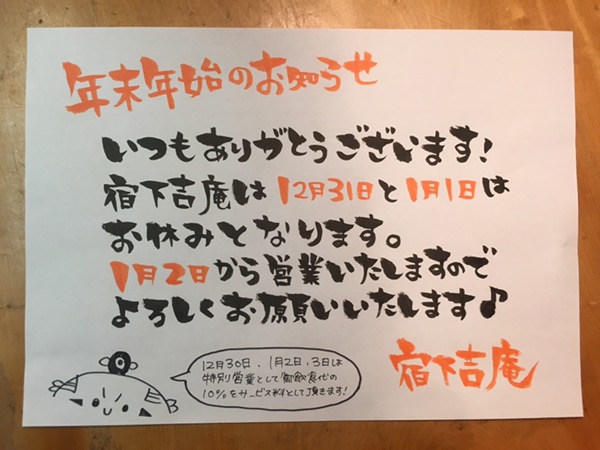 年末年始のお知らせ
いつもありがとうございます!
宿下吉庵は12月31日と1月1日は
お休みとなります。
1月2日から営業いたしますので
よろしくお願いいたします♪
宿下吉庵
12月30日、1月2日、3日は
特別営業として御飲食代の
10%をサービス料として頂きます!